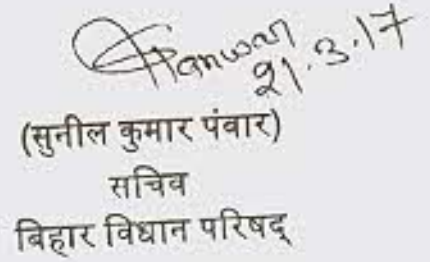 Panwar
21.3.17
(सुनील कुमार पंवार)
सचिव
बिहार विधान परिषद्